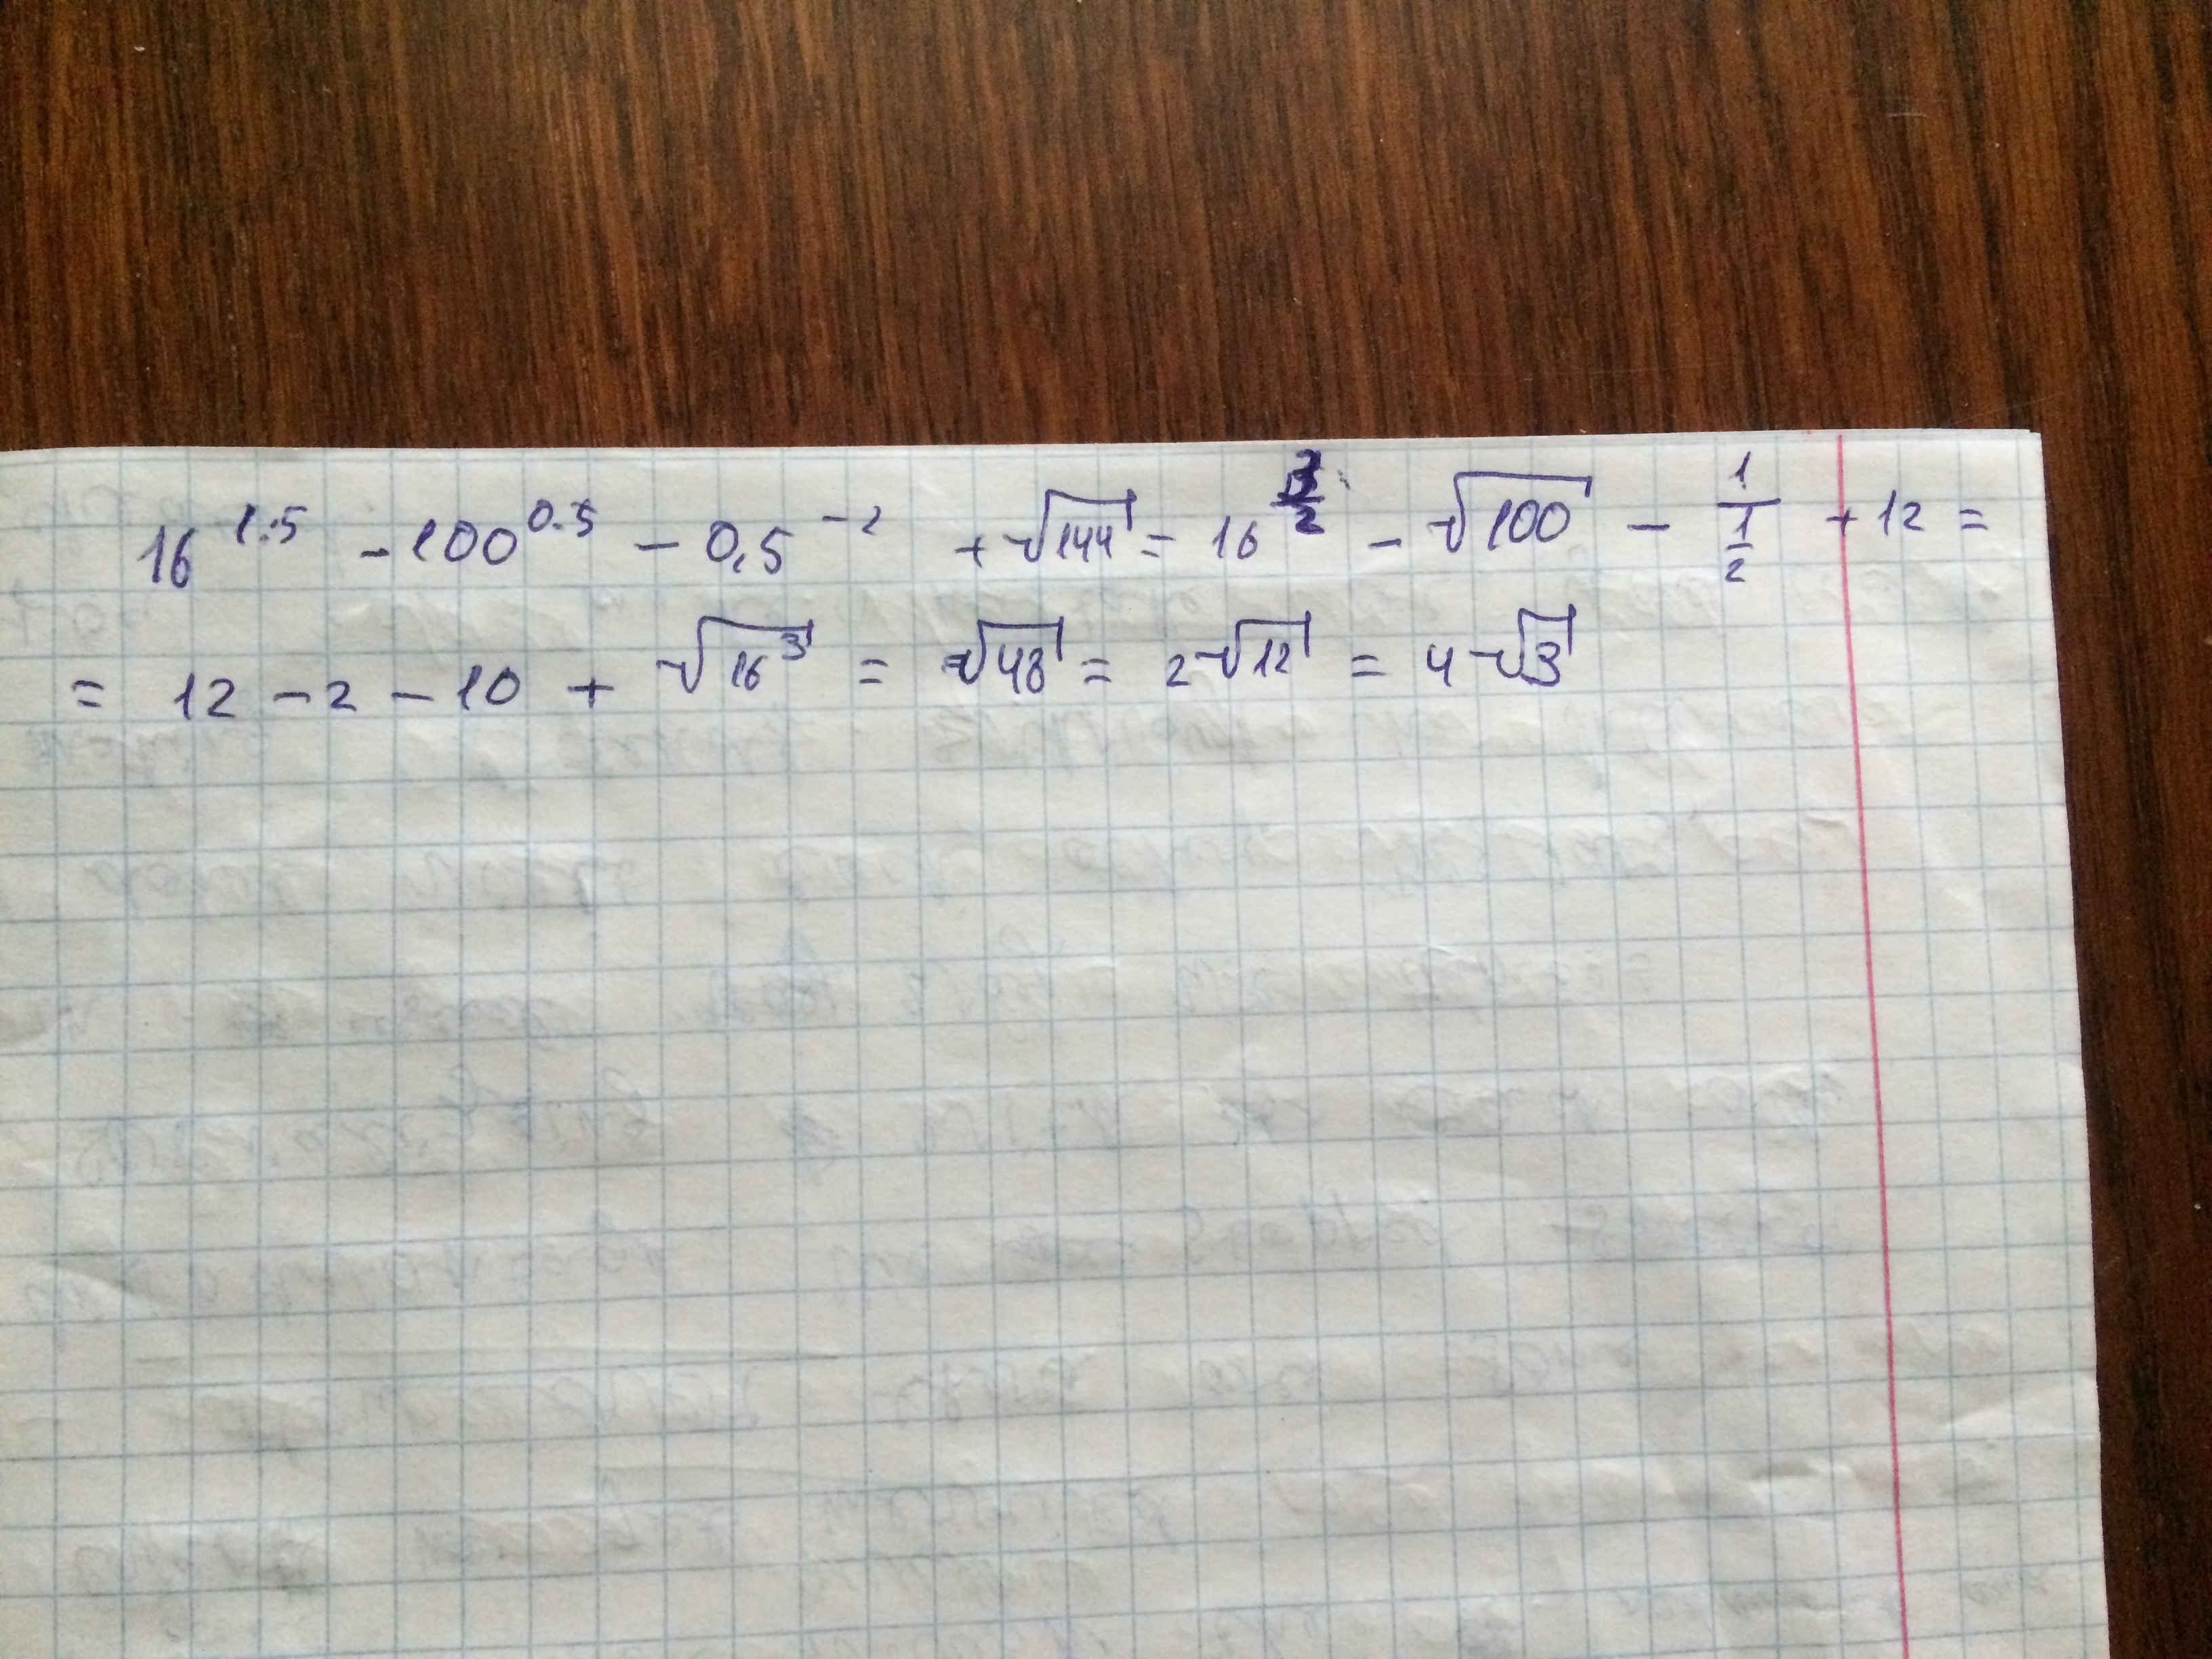 16^1.5 - 100^0.5 - 0,5^-2 + √144 = 16^3/2 - √100 - 1/(1/2) + 12 =
= 12 - 2 - 10 + √16^3 = √48 = 2√12 = 4√3